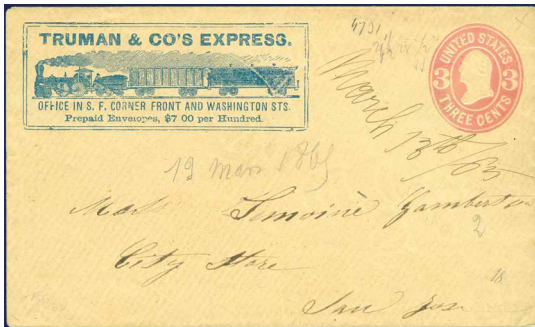 TRUMAN & CO'S EXPRESS.
OFFICE IN S. F. CORNER FRONT AND WASHINGTON STS.
Prepaid Envelopes, $7 00 per Hundred.
UNITED STATES
3 3
THREE CENTS
March 13th/65
19 mars 1865
Lemoine
2
City Store
18
San Jose